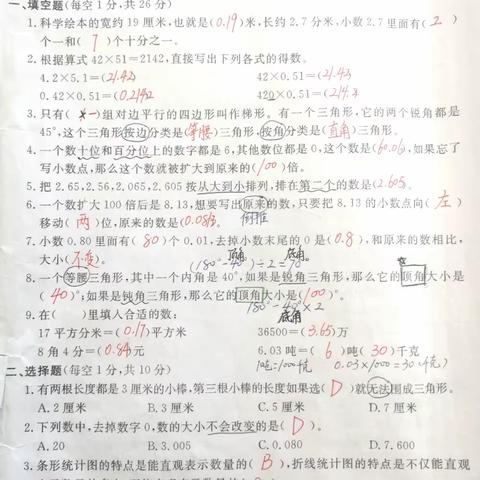 一、填空题(每空 1 分,共 26 分)
1. 科学绘本的宽约 19 厘米,也就是(0.19)米,长约 2.7 分米,小数 2.7 里面有(2)
个一和(7)个十分之一。
2. 根据算式 42×51=2142,直接写出下列各式的得数。
4.2×5.1=(21.42) 42×0.51=(21.42)
0.42×0.51=(0.2142) 420×0.51=(214.2)
3. 只有(一)组对边平行的四边形叫作梯形。有一个三角形,它的两个锐角都是
45°,这个三角形按边分类是(等腰)三角形,按角分类是(直角)三角形。
4. 一个数十位和百分位上的数字都是 6,其他数位都是 0,这个数是(60.06),如果忘了
写小数点,那么这个数就被扩大到原来的(100)倍。
5. 把 2.65,2.56,2.065,2.605 按从大到小排列,排在第二个的数是(2.605)。
6. 一个数扩大 100 倍后是 8.13,想要写出原来的数,只要把 8.13 的小数点向(左)
移动(两)位,原来的数是(0.0813)。 倒推
7. 小数 0.80 里面有(80)个 0.01,去掉小数末尾的 0 是(0.8),和原来的数相比,
大小(不变)。
顶角 底角
(180°-40°)÷2=70°
8. 一个等腰三角形,其中一个内角是 40°,如果是锐角三角形,那么它的顶角大小是
(40)°;如果是钝角三角形,那么它的顶角大小是(100)°。
180°-40°×2
底角
9. 在( )里填入合适的数:
17 平方分米=(0.17)平方米 36500=(3.65)万
8 角 4 分=(0.84)元 6.03 吨=(6)吨(30)千克
1吨=1000千克 0.03×1000=30(千克)
二、选择题(每空 1 分,共 10 分)
1. 有两根长度都是 3 厘米的小棒,第三根小棒的长度如果选(D)就无法围成三角形。
A. 2 厘米 B. 3 厘米 C. 5 厘米 D. 7 厘米
2. 下列数中,去掉数字 0,数的大小不会改变的是(D)。
A. 20 B. 3.005 C. 0.080 D. 7.600
3. 条形统计图的特点是能直观表示数量的(B),折线统计图的特点是不仅能直观